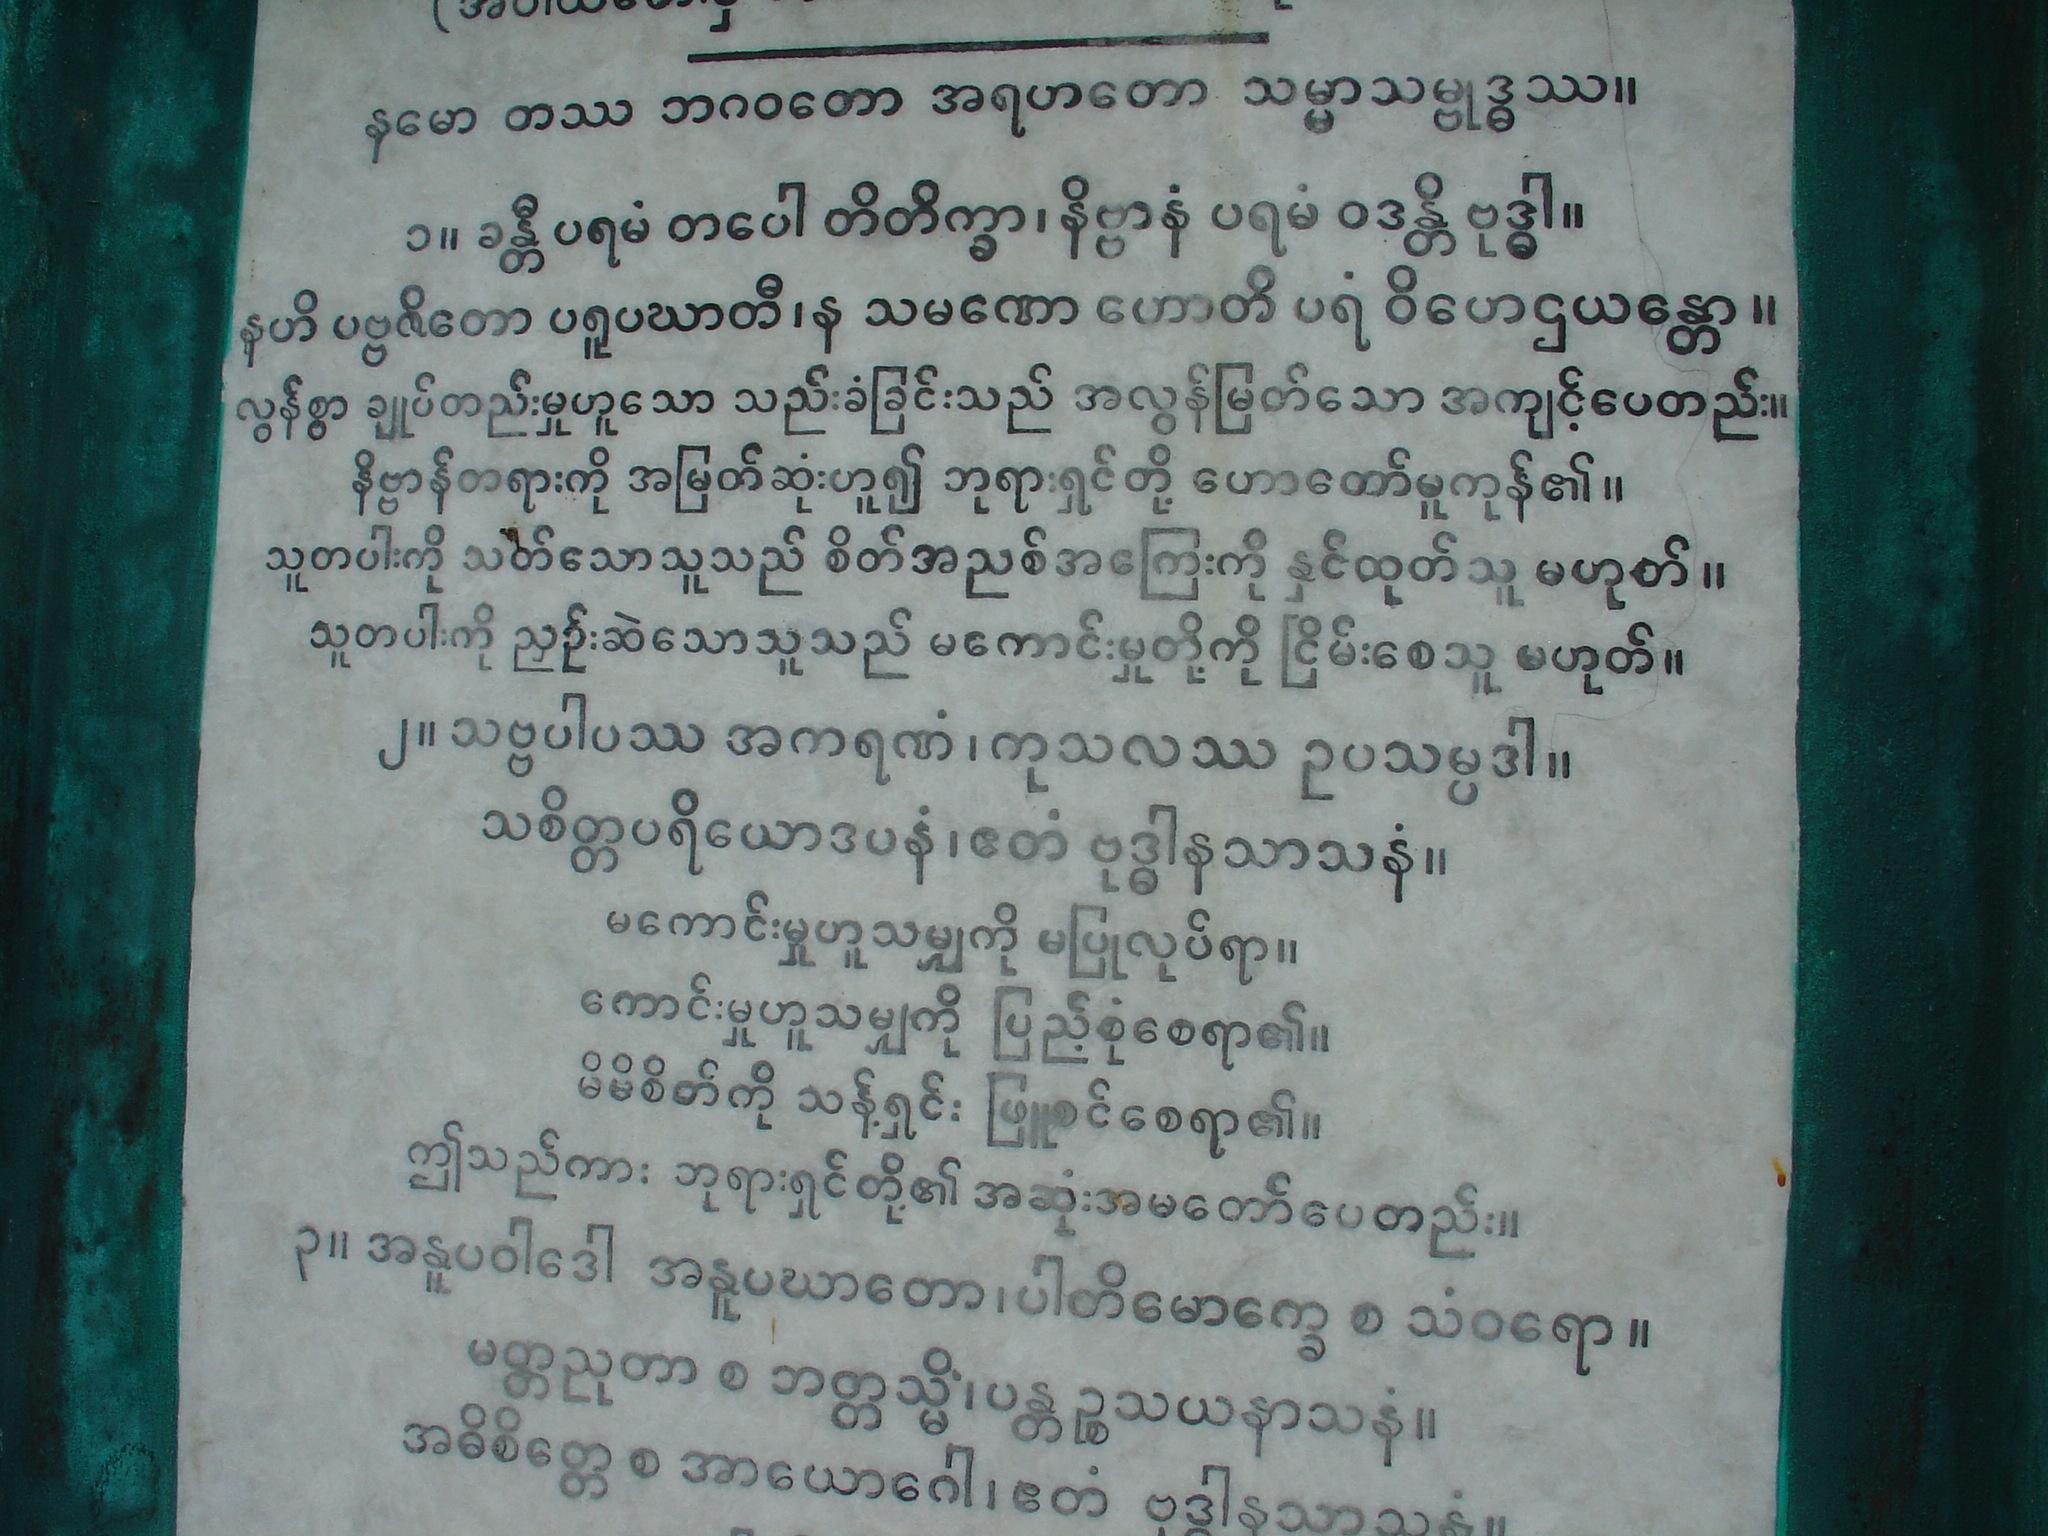 နမော တဿ ဘဂဝတော အရဟတော သမ္မာသမ္ဗုဒ္ဓဿ။
၁။ ခန္တီ ပရမံ တပေါ တိတိက္ခာ၊ နိဗ္ဗာနံ ပရမံ ဝဒန္တိ ဗုဒ္ဓါ။
နဟိ ပဗ္ဗဇိတော ပရူပဃာတီ၊ န သမဏော ဟောတိ ပရံ ဝိဟေဌယန္တော။
လွန်စွာ ချုပ်တည်းမှုဟူသော သည်းခံခြင်းသည် အလွန်မြတ်သော အကျင့်ပေတည်း။
နိဗ္ဗာန်တရားကို အမြတ်ဆုံးဟူ၍ ဘုရားရှင်တို့ ဟောတော်မူကုန်၏။
သူတပါးကို သတ်သောသူသည် စိတ်အညစ်အကြေးကို နှင်ထုတ်သူ မဟုတ်။
သူတပါးကို ညှဉ်းဆဲသောသူသည် မကောင်းမှုတို့ကို ငြိမ်းစေသူ မဟုတ်။
၂။ သဗ္ဗပါပဿ အကရဏံ၊ ကုသလဿ ဥပသမ္ပဒါ။
သစိတ္တပရိယောဒပနံ၊ ဧတံ ဗုဒ္ဓါနသာသနံ။
မကောင်းမှုဟူသမျှကို မပြုလုပ်ရာ။
ကောင်းမှုဟူသမျှကို ပြည့်စုံစေရာ၏။
မိမိစိတ်ကို သန့်ရှင်း ဖြူစင်စေရာ၏။
ဤသည်ကား ဘုရားရှင်တို့၏ အဆုံးအမတော်ပေတည်း။
၃။ အနူပဝါဒေါ အနူပဃာတော၊ ပါတိမောက္ခေ စ သံဝရော။
မတ္တညုတာ စ ဘတ္တသ္မိံ၊ ပန္တဉ္စသယနာသနံ။
အဓိစိတ္တေ စ အာယောဂေါ၊ ဧတံ ဗုဒ္ဓါနသာသနံ။